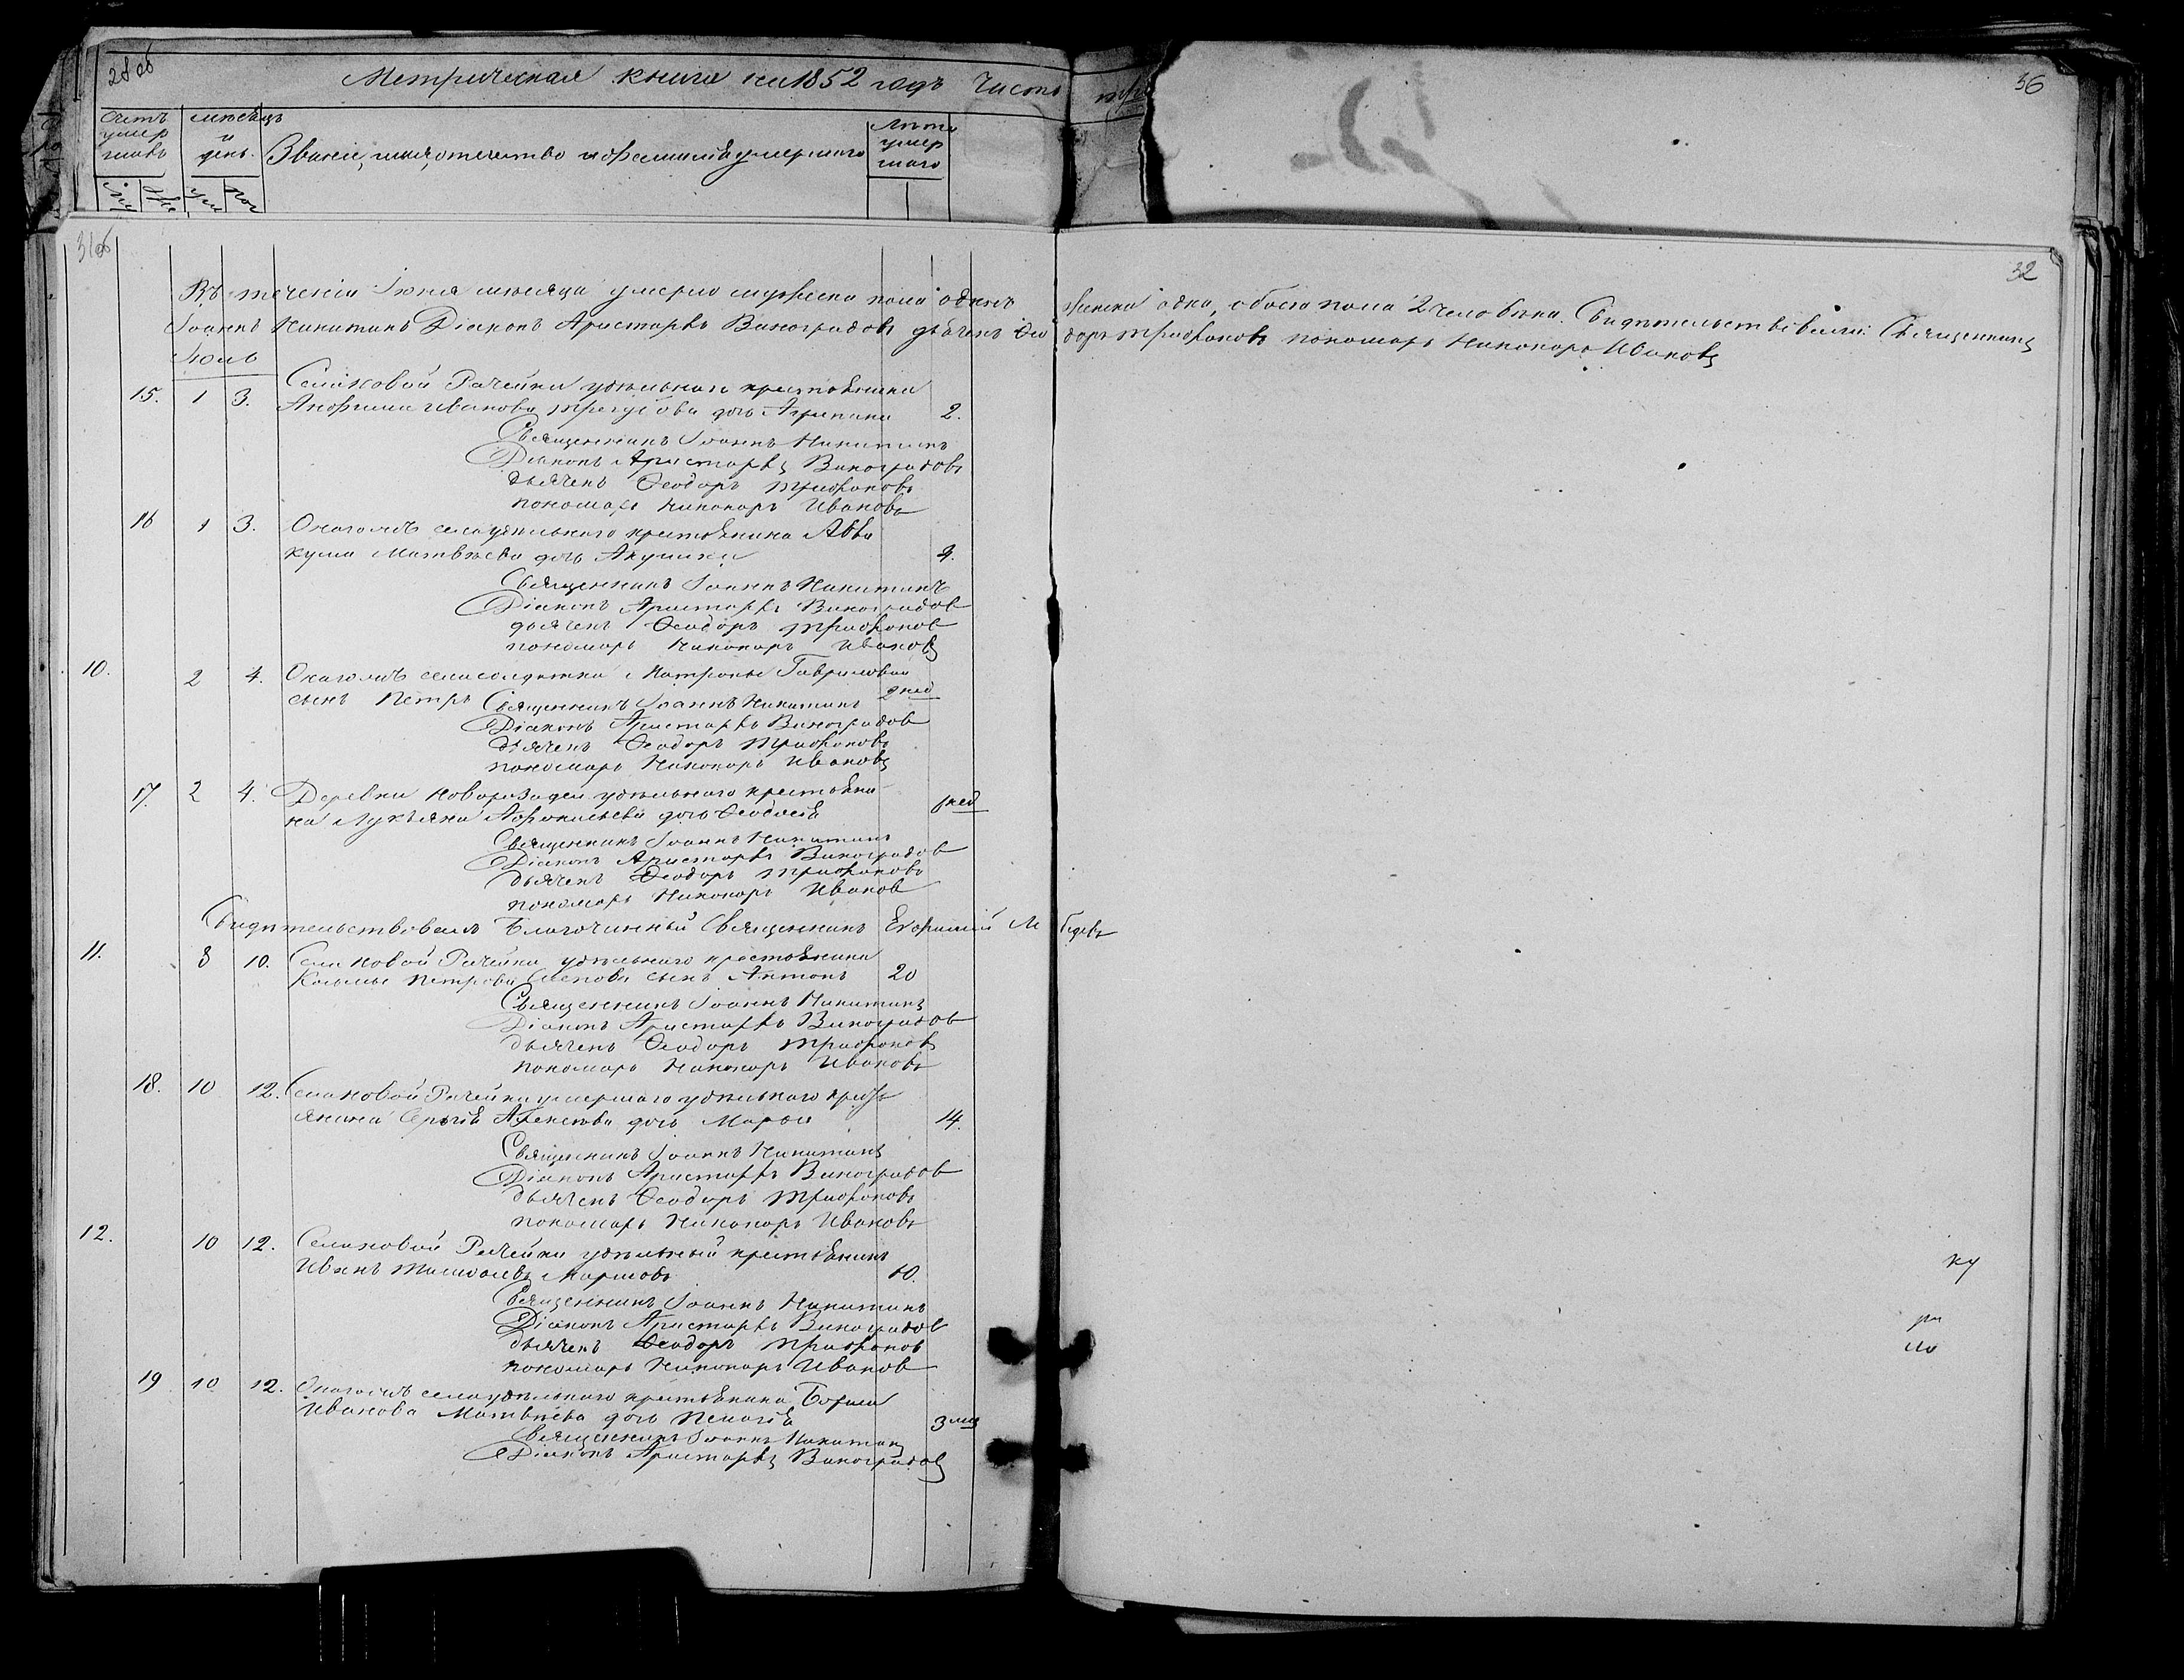 28 об
Метрическая книга на 1852 годъ Часть
36
Счетъ умер шивъ
мѣсяцъ и день.
Званіе, имя, отчество и фамилія умершаго
Лѣта умер шаго
31об
32
Въ теченіи Іюня мѣсяца умерло мужеска пола одинъ женска одна, обоего пола 2 человѣка. Свидѣтельствовали: Священникъ
Іоаннъ Никитинъ Діаконъ Аристархъ Виноградовъ дьячекъ Ѳеодоръ Трифоновъ пономарь Никаноръ Ивановъ
Іюль
15. 1 3. Села Новой Рачейки удѣльнаго крестьянина
Анфима Иванова дочь Агрипина 2.
Священникъ Іоаннъ Никитинъ
Діаконъ Аристархъ Виноградовъ
дьячекъ Ѳеодоръ Трифоновъ
пономарь Никаноръ Ивановъ
16 1 3. Онагожъ села удѣльнаго крестьянина Авва
кума Матвѣева дочь Акулина
Священникъ Іоаннъ Никитинъ
Діаконъ Аристархъ Виноградов
дьячекъ Ѳеодоръ Трифонов
пономарь Никаноръ Ивановъ
10. 2 4. Онагожъ села солдатки Матроны Гавриловой
сынъ Петръ 2 нед
Священникъ Іоаннъ Никитинъ
Діаконъ Аристархъ Виноградов
дьячекъ Ѳеодоръ Трифоновъ
пономарь Никаноръ Ивановъ
17. 2 4. Деревни удѣльнаго крестьяни
на Лукьяна Афонасьева дочь Ѳеодосія 1 нед
Священникъ Іоаннъ Никитинъ
Діаконъ Аристархъ Виноградов
дьячекъ Ѳеодоръ Трифоновъ
пономарь Никаноръ Иванов
Свидѣтельствовалъ Благочинный Священникъ Евфимій
11. 8 10. Села Новой Рачейки удѣльнаго крестьянина
Козьмы Петрова сынъ Антонъ 20
Священникъ Іоаннъ Никитинъ
Діаконъ Аристархъ Виноградов
дьячекъ Ѳеодоръ Трифоновъ
пономарь Никаноръ Ивановъ
18. 10 12. Села Новой Рачейки умершаго удѣльнаго крест
янина Сергѣя Алексѣева дочь Марья 14.
Священникъ Іоаннъ Никитинъ
Діаконъ Аристархъ Виноградов
дьячекъ Ѳеодоръ Трифоновъ
пономарь Никаноръ Ивановъ
12. 10 12. Села Новой Рачейки удѣльный крестьянинъ
Иванъ Тимоѳеевъ
Священникъ Іоаннъ Никитинъ
Діаконъ Аристархъ Виноградов
дьячекъ Ѳеодоръ Трифонов
пономарь Никаноръ Иванов
19 10 12. Онагожъ села удѣльнаго крестьянина Бориса
Иванова Матвѣева дочь Пелагѣя 3 мѣс
Священникъ Іоаннъ Никитинъ
Діаконъ Аристархъ Виноградовъ